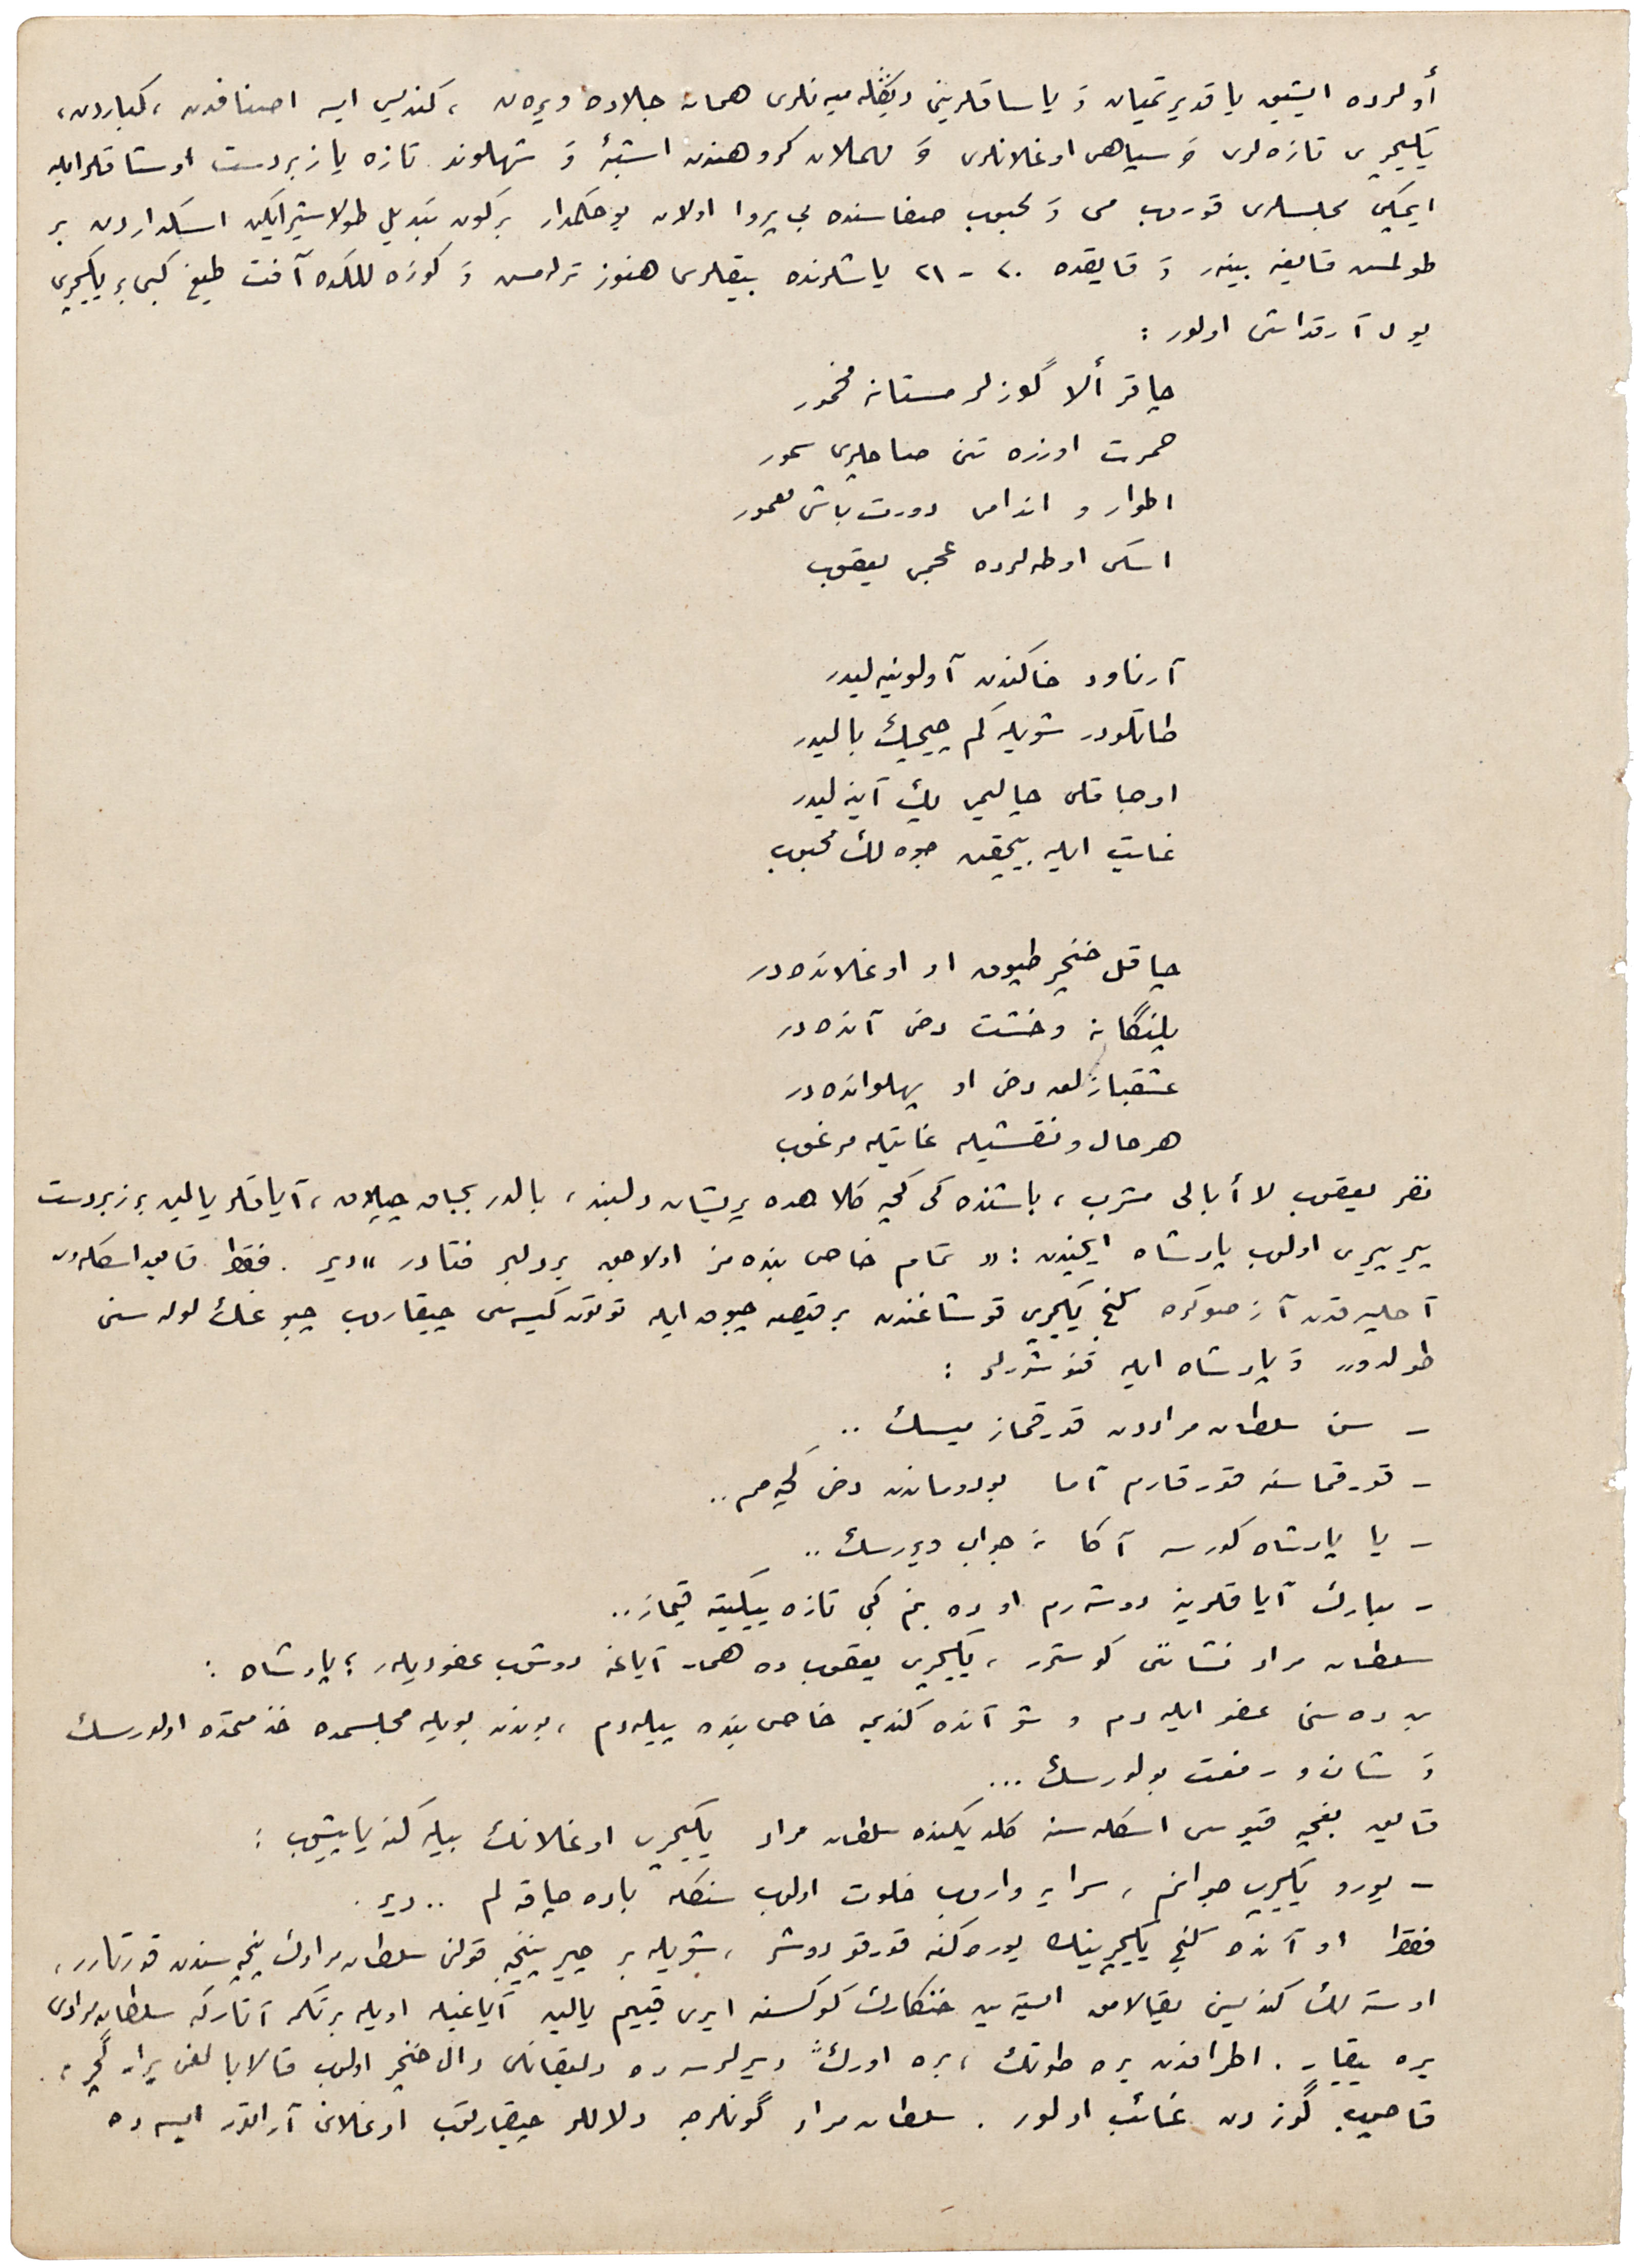 أولرده ایشیق یاقدیرتمیان وَ یاساقلرینی دیڭله‌میه‌نلری همان جلاده ویره‌ن ، کندیسی ایسه اصنافدن ، کباردن ،
یڭیچری تازه‌لری وَ سپاهی اوغلانلری وَ گروهندن وَ شهلوند تازه یا زبردست اوستاقلر ایله
ایچکی مجلسلری قوروب می وَ محبوب صفاسنده بی پروا اولان بو حکمدار بر کون تبدیل طولاشیر ایکن اسکداردن بر
طولمش قایغه بینر وَ قایقده ٢٠ - ٢١ یاشلرنده بیقلری هنوز ترلمش وَ کوزه للکده آفت طبع کبی بر یڭیچری
یول آرقداشی اولور :
چاقر ألا گوزلر مستانه مخمور
حمرت اوزره تنی صاچلری سمور
اطوار و اندامی دورت باشی معمور
اسکی اوطه‌لرده عجمی یعقوب
آرناود خاکندن آولونیه‌لیدر
طاتلودر شویله کم چیچك بالیدر
اوجاقلی چالیمی پك آینه‌لیدر
غایت ایله بیچقین جوه‌لك محبوب
چاقل خنجر طپوق او اوغلانده‌در
پلنگانه وخشت دخی آنده‌در
عشقبازلق دخی او پهلوانده‌در
هر حال و نقشیله غایتله مرغوب
نفر یعقوب لاأبالی مشرب ، باشنده کی کچه کلاهده پریشان دلبند ، بالدیر بجاق چپلاق ، آیاقلر یالین بر زبردست
پیرپیری اولوب پادشاه ایچندن : « تمام خاص بنده‌مز اولاجق بر دلبر فتادر » دیر . فقط قایق اسکله‌دن
آچلیرقدن آز صوکره گنج یڭیچری قوشاغندن بر قیصه چبوق ایله توتون کیسه‌سی چیقاروب چبوغنك لوله‌سنی
طولدورر وَ پادشاه ایله قنوشورلر :
- سن سلطان مراددن قورقماز میسك ..
- قورقماسنه قورقارم آما بو دوماندن دخی گچه‌مم ..
- یا پادشاه کورسه آکا نه جواب ویررسك ..
- مبارك آیاقلرینه دوشه‌رم او ده بنم کبی تازه ییگیته قیماز ..
سلطان مراد نشاننی کوسترر ، یڭیچری یعقوب ده همان آیاغه دوشوب عفو دیلر ؛ پادشاه :
بن ده سنی عفو ایله‌دم و شو آنده کندیمه خاص بنده ییله‌دم ، بوندن بویله مجلسمده خذمتمده اولورسك
وَ شان و رفعت بولورسك ...
قایق بغچه قپوسی اسکله‌سنه کلدیکنده سلطان مراد یڭیچری اوغلانك بیله‌کنه یاپیشوب :
- یورو یڭیچری جوانم ، سرایه واروب خلوت اولوب سنکله باده چاقه‌لم .. دیر .
فقط او آنده گنج یڭیچرینك یوره‌کنه قورقو دوشر ، شویله بر چیرپینجه قولنی سلطان مرادك پنجه‌سندن قورتارر ،
اوسته‌لك کندیسنی یقالامق ایسته‌ین خنکارك کوکسنه ایری قییم یالین آیاغیله اویله بر تکمه آتارکه سلطان مرادی
یره ییقار . اطرافدن بره طوتك ، بره اورك دیرلرسه ده دلیقانلی دال خنجر اولوب قالابالغی یارار گچر ،
قاچوب گوزدن غائب اولور . سلطان مراد گونلرجه دلاللر چیقارتوب اوغلانی آراتدیر ایسه ده